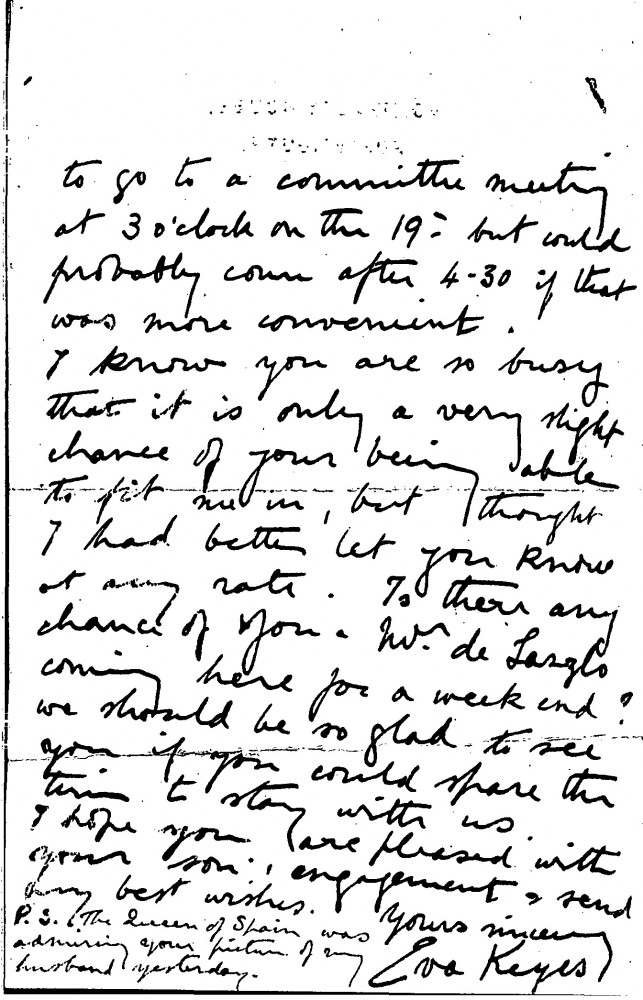 to go to a committee meeting
at 3 o'clock on the 19th but could
probably come after 4-30 if that
was more convenient.
I know you are so busy
that it is only a very slight
chance of your being able
to fit me in, but thought
I had better let you know
at any rate. Is there any
chance of you & Mrs. de Laszlo
coming here for a week end?
we should be so glad to see
you if you could spare the
time to stay with us.
I hope you are pleased with
your son's engagement & send
my best wishes.
Yours sincerely
Eva Keyes
P.S. The Queen of Spain was
admiring your picture of my
husband yesterday.